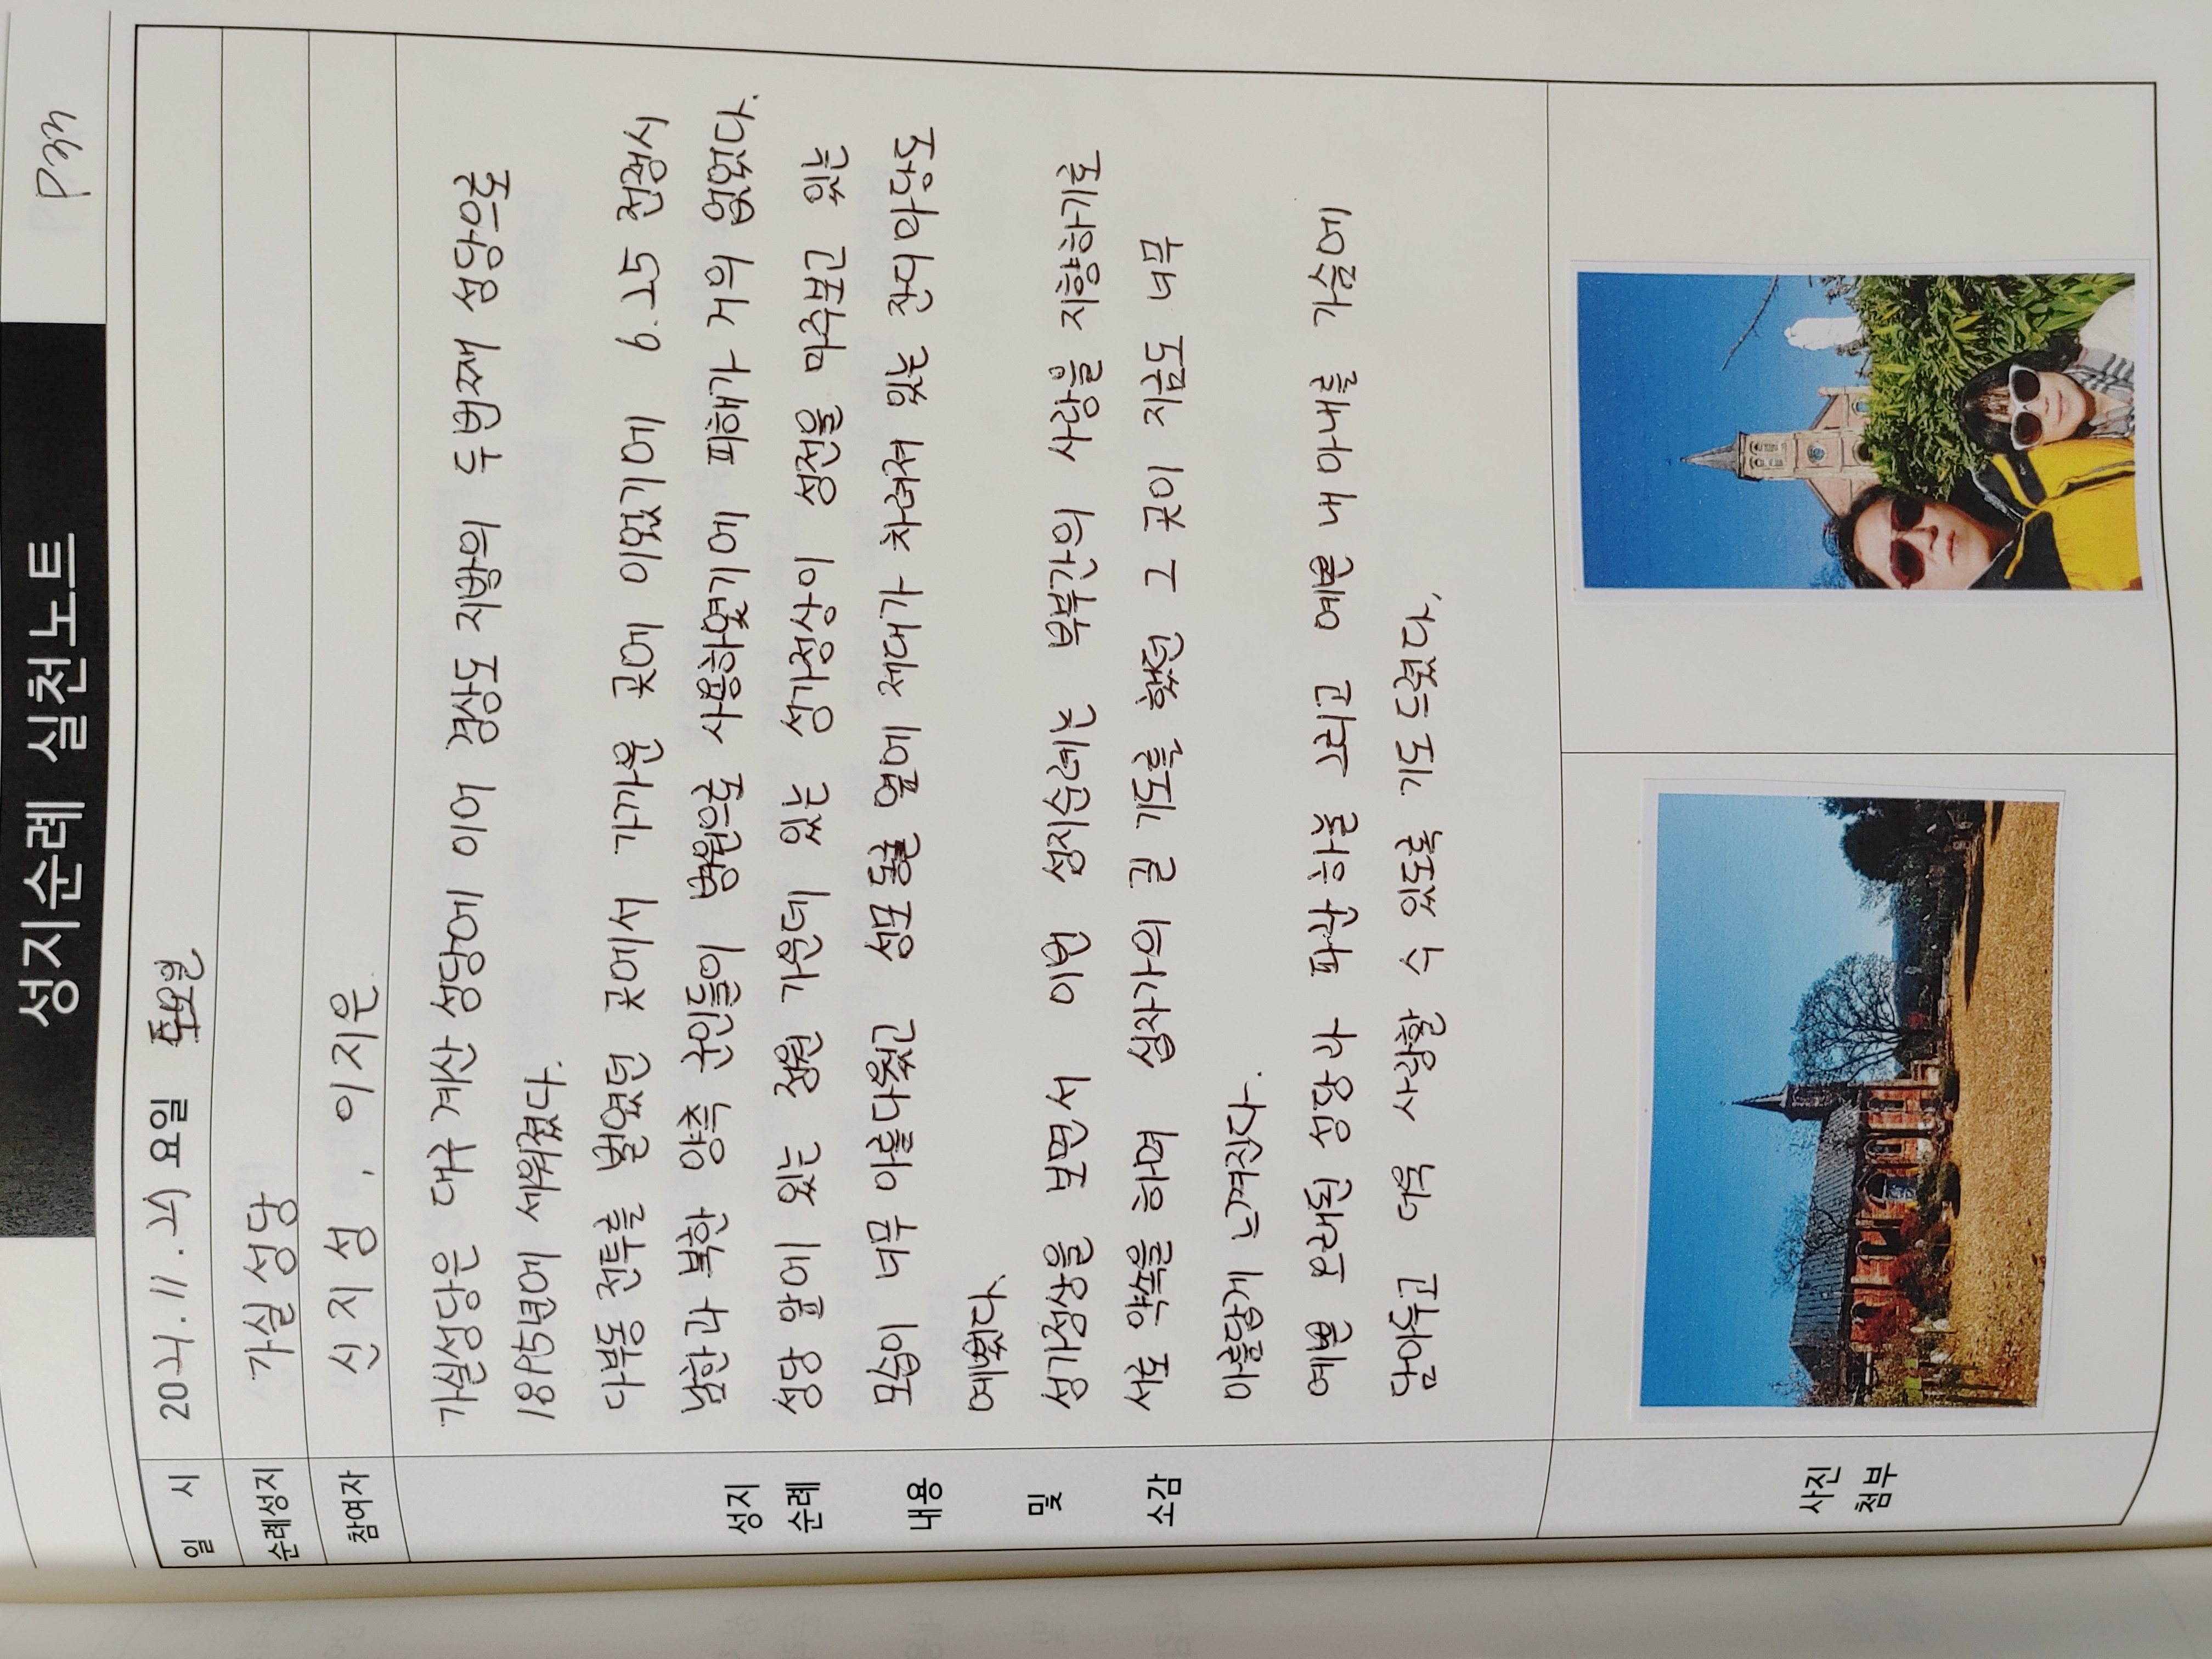 성지순례 실천노트 P33
일 시 2021.11.27 요일 토요일
순례성지 가실성당
참여자 신지성, 이지은.
성지 순례 내용 및 소감
가실성당은 대구 계산 성당에 이어 경상도 지방의 두번째 성당으로
1895년에 세워졌다.
다부동 전투를 벌였던 곳에서 가까운 곳에 이었기에 6.25 전쟁시
남한과 북한 양측 군인들이 병원으로 사용하였기에 피해가 거의 없었다.
성당 앞에 있는 정원 가운데 있는 성가정상이 성전을 마주보고 있는
모습이 너무 아름다웠고 성모동굴 옆에 제대가 차려져 있는 잔디마당도
예뻤다.
성가정상을 보면서 이번 성지순례는 부부간의 사랑을 지향하기로
서로 약속을 하며 십자가의 길 기도를 했던 그 곳이 지금도 너무
아름답게 느껴진다.
예쁜 오래된 성당과 파란 하늘 그리고 예쁜 내 아내를 가슴에
담아두고 더욱 사랑할 수 있도록 기도 드렸다.
사진 첨부